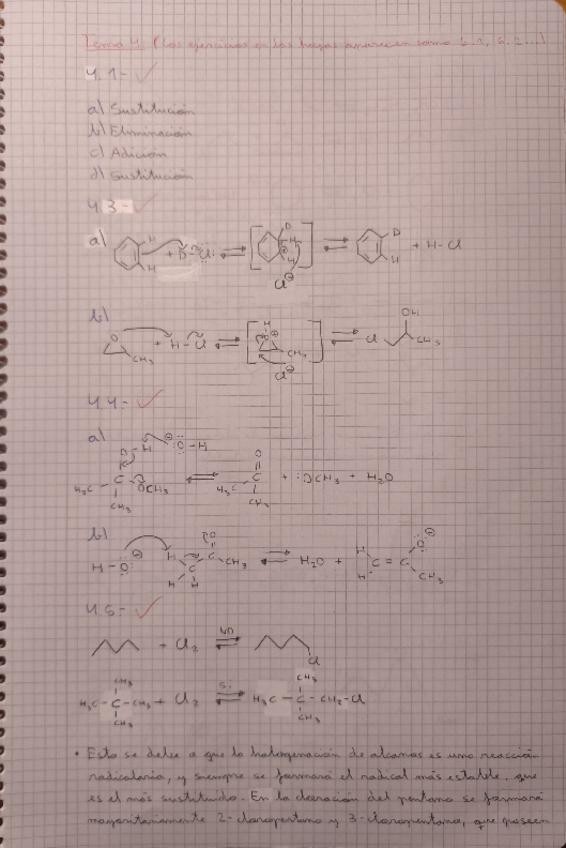 Tema 4. (Los ejercicios en las hojas aparecen como 5.1, 5.2...)
4.1-
a) Sustitución
b) Eliminación
c) Adición
d) Sustitución
4.3-
a) H H + D-Cl D H H Cl⊖ D H + H-Cl
b) O CH₃ + H-Cl H O⊕ CH₃ Cl⊖ OH Cl CH₃
4.4-
a) O-H ⊖O-H
H₃C C OCH₃ CH₃ O H₃C C CH₃ + :OCH₃ + H₂O
b) H-O⊖ H C H H O C CH₃ H₂O + H H C = C O⊖ CH₃
4.5-
+ Cl₂ NO Cl
CH₃ H₃C-C-CH₃ CH₃ + Cl₂ Sí CH₃ H₃C-C-CH₂-Cl CH₃
• Esto se debe a que la halogenación de alcanos es una reacción
radicalaria, y siempre se formará el radical más estable, que
es el más sustituido. En la cloración del pentano se formará
mayoritariamente 2-cloropentano y 3-cloropentano, que poseen